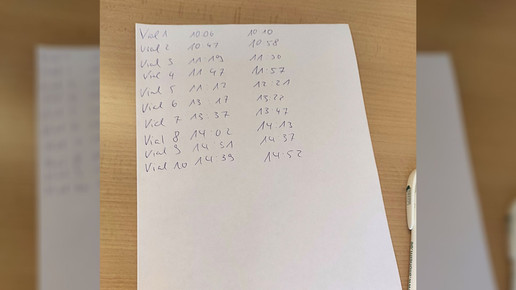 Vial 1 10:06 10:10
Vial 2 10:47 10:58
Vial 3 11:19 11:30
Vial 4 11:47 11:57
Vial 5 11:12 12:21
Vial 6 13:17 13:22
Vial 7 13:37 13:47
Vial 8 14:02 14:13
Vial 9 14:31 14:37
Vial 10 14:39 14:52